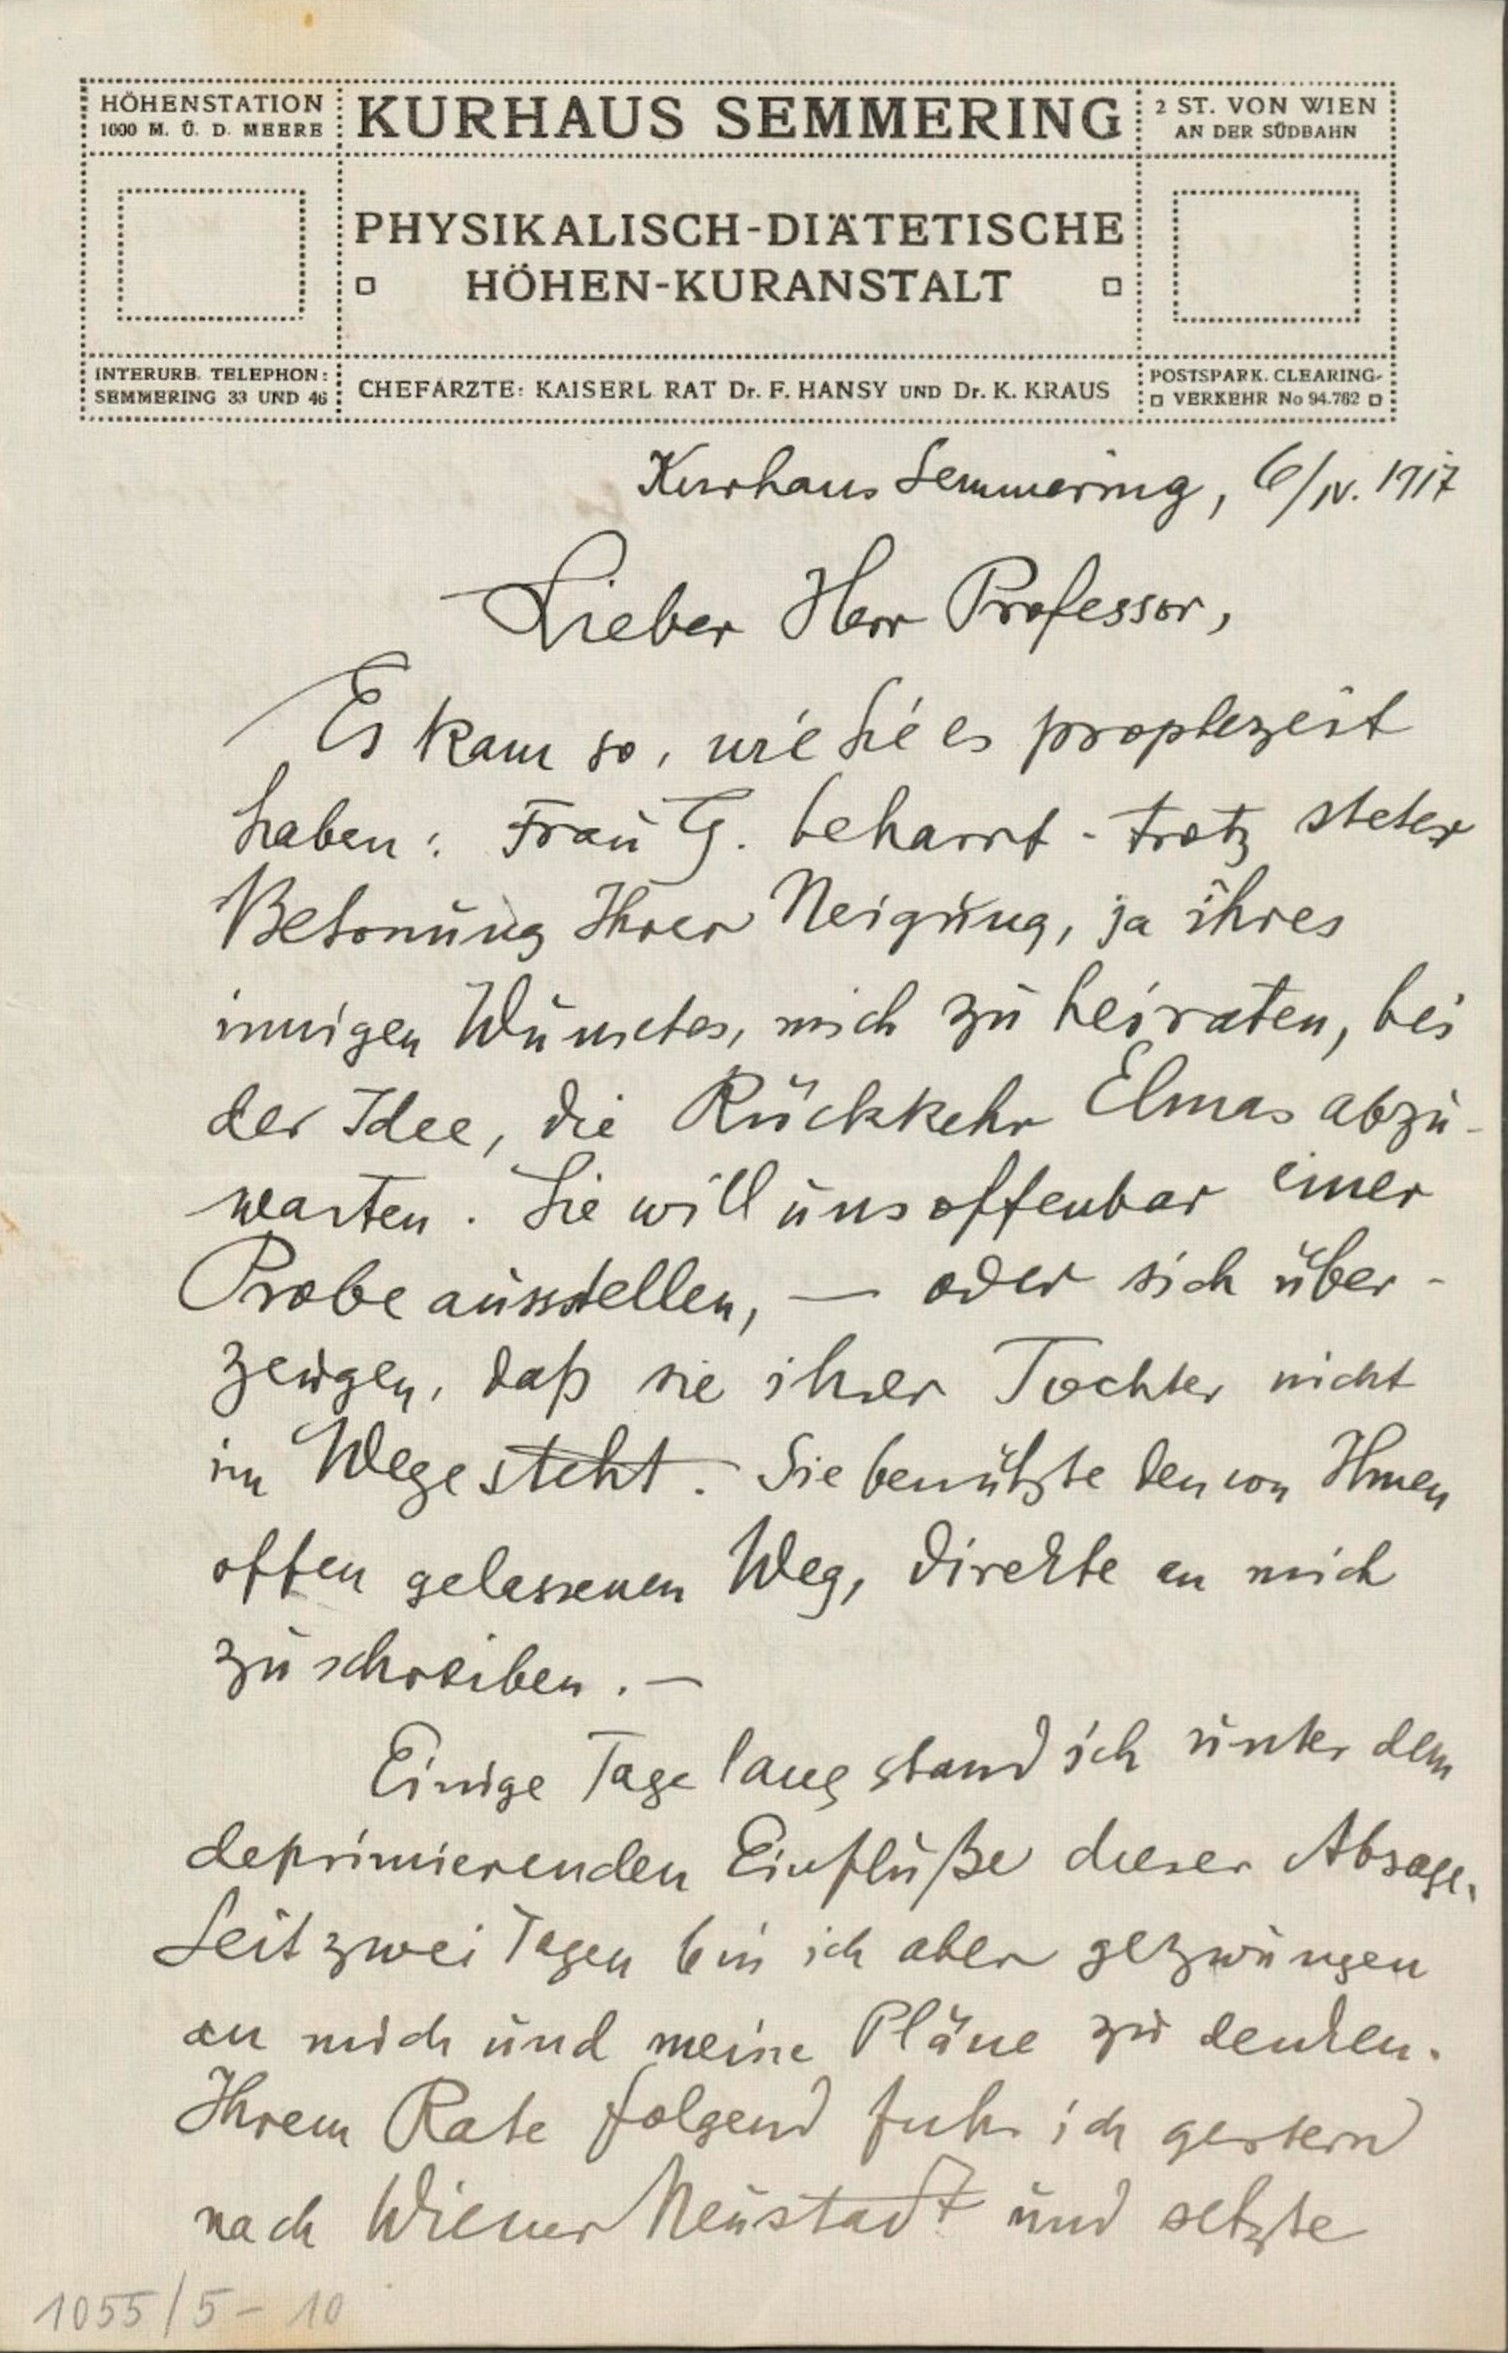 HÖHENSTATION
1000 M. Ü. D. MEERE
KURHAUS SEMMERING
2 ST. VON WIEN
AN DER SÜDBAHN
PHYSIKALISCH-DIÄTETISCHE
HÖHEN-KURANSTALT
INTERURB. TELEPHON:
SEMMERING 33 UND 46
CHEFÄRZTE: KAISERL. RAT Dr. F. HANSY UND Dr. K. KRAUS
POSTSPARK. CLEARING-
VERKEHR No 94.762
Kurhaus Semmering, 6/IV. 1917
Lieber Herr Professor,
Es kam so, wie Sie es prophezeit
haben: Frau G. beharrt - trotz steter
Betonung Ihrer Neigung, ja ihres
innigen Wunsches, mich zu heiraten, bei
der Idee, die Rückkehr Elmas abzu-
warten. Sie will uns offenbar einer
Probe ausstellen, — oder sich über-
zeugen, daß sie ihrer Tochter nicht
im Wege steht. Sie benützte den von Ihnen
offen gelassenen Weg, direkte an mich
zu schreiben. —
Einige Tage lang stand ich unter dem
deprimierenden Einfluße dieser Absage.
Seit zwei Tagen bin ich aber gezwungen
an mich und meine Pläne zu denken.
Ihrem Rate folgend fuhr ich gestern
nach Wiener Neustadt und setzte
1055/5-10